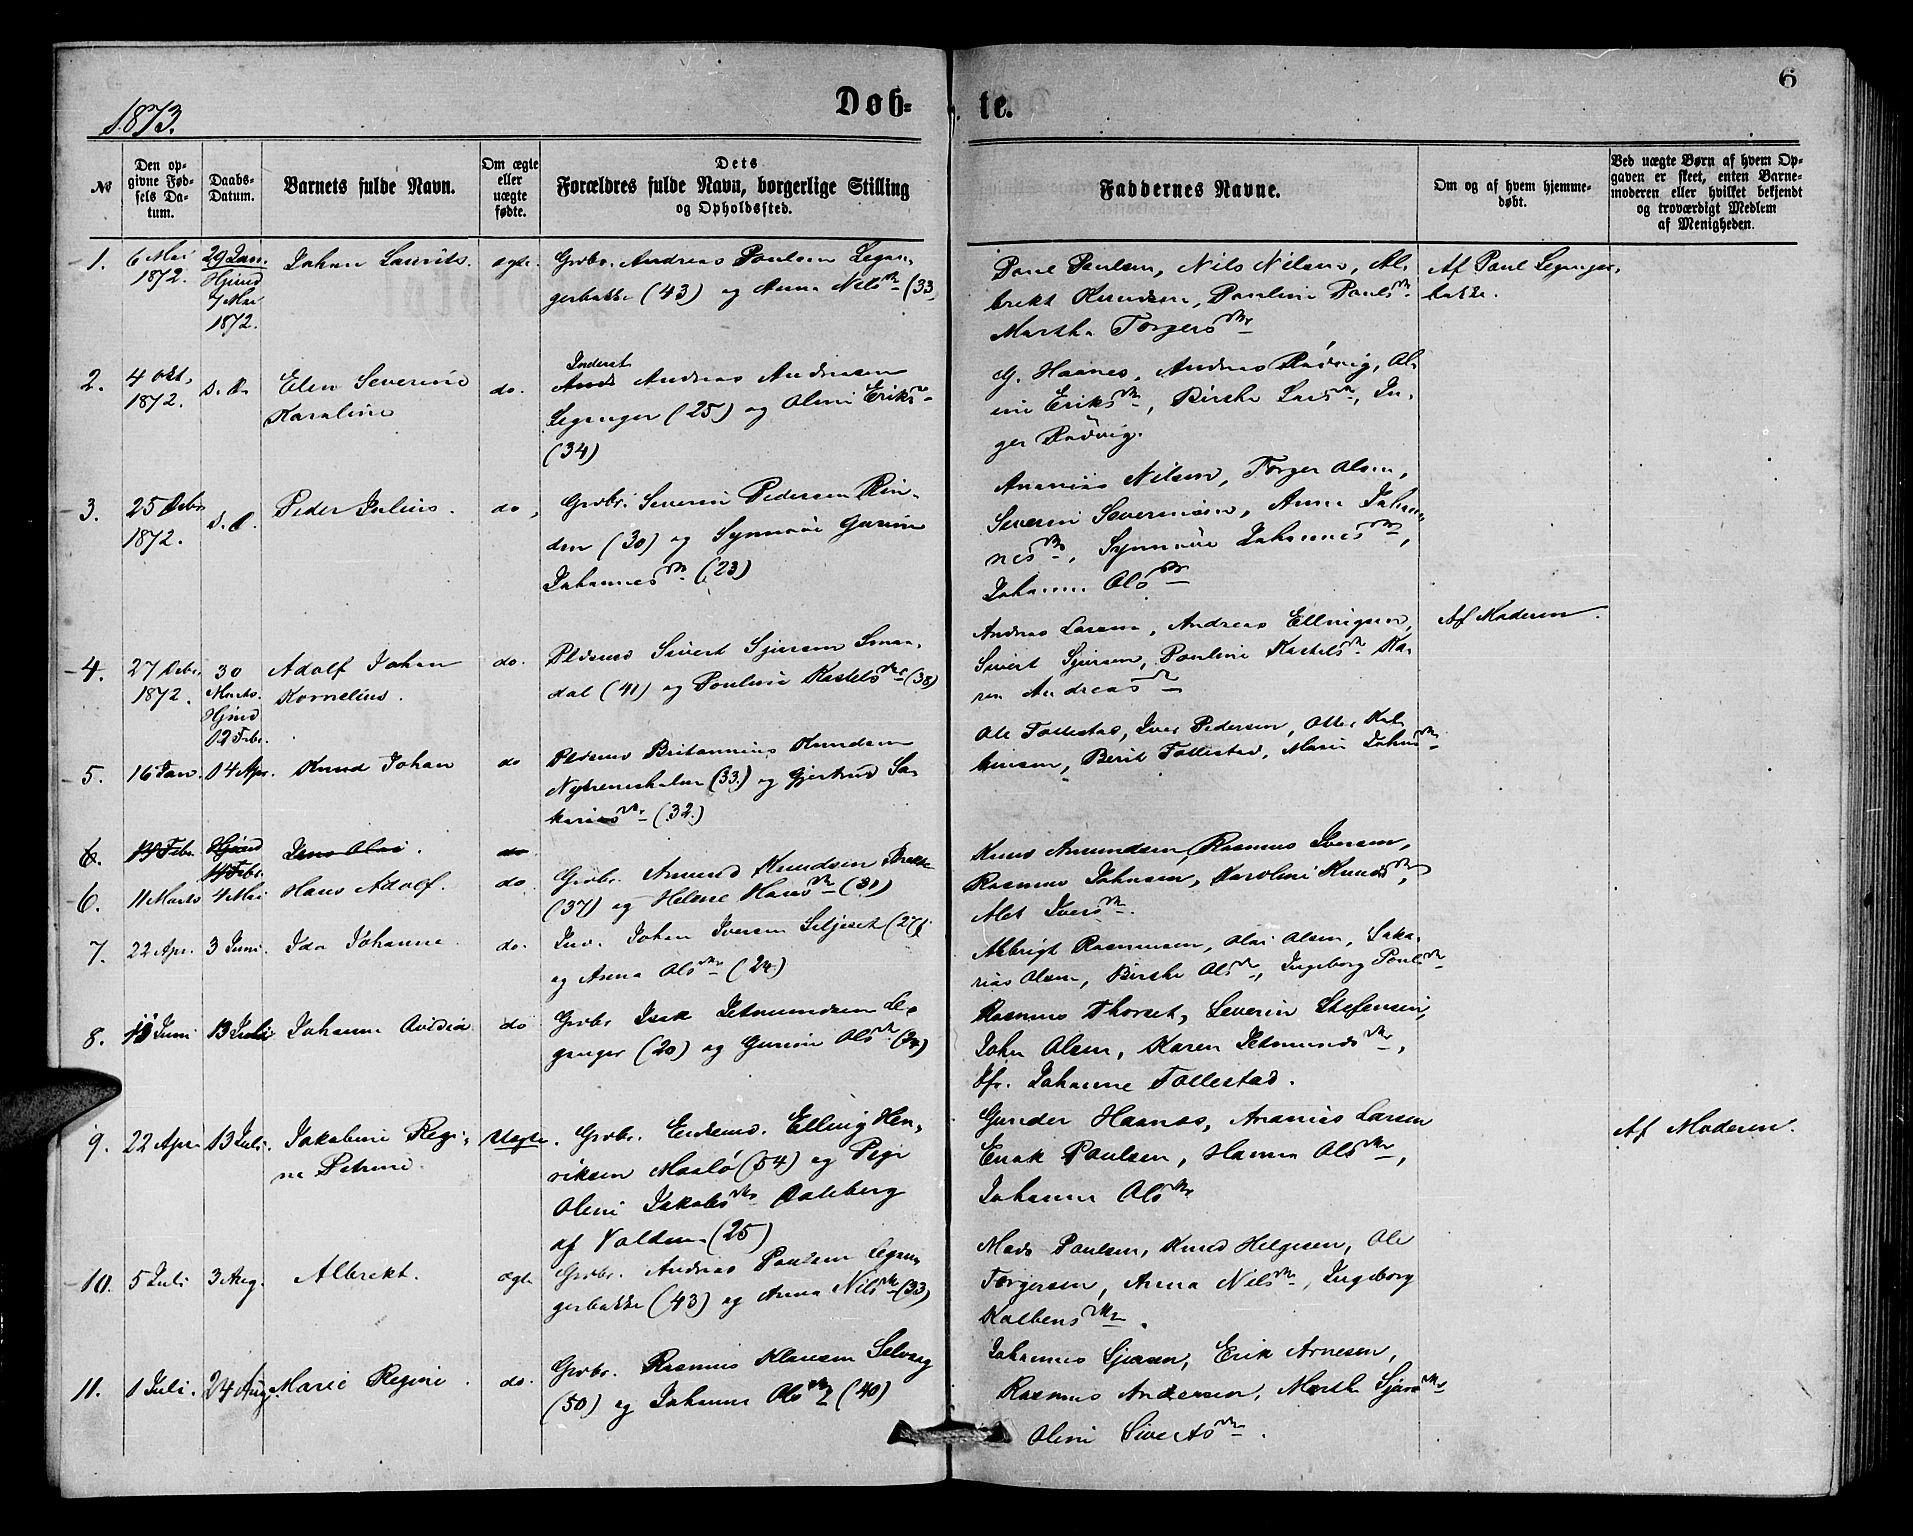 1873.
Døb-
te.
6
№
Den op-
givne Fød-
sels Da-
tum.
Daabs-
Datum.
Barnets fulde Navn.
Om ægte
eller
uægte
fødte.
Dets
Forældres fulde Navn, borgerlige Stilling
og Opholdssted.
Faddernes Navne.
Om og af hvem hjemme-
døbt.
Ved uægte Børn af hvem Op-
gaven er skeet, enten Barne-
moderen eller hvilket bekjendt
og troværdigt Medlem
af Menigheden.
1.
6 Mai
1872.
29 Jan.
Hjmd
7 Mai
1872.
Johan Laurits.
ægte.
Grbr. Andreas Poulsen Legan-
gerbakke (43) og Anna Nils (33
Poul Poulsen, Nils Nilsen, Al-
brekt Knudsen, Pauline Pouls
Martha Torgers
Af Paul Leganger-
bakke.
2.
4 Okt.
1872.
s. D.
Elen Severine
Karoline
do.
Inderst
Andreas Andreasen
Leganger (25) og Oline Eriks
(34)
G. Haanes, Andreas Rødvig, Ol-
ine Eriks, Birthe Lars, In-
ger Rødvig.
3.
25 Debr
1872.
s. D.
Peder Julius.
do,
Grbr. Severin Pedersen Rin-
den (30) og Synnøve Gurine
Johannes (23)
Ananias Nilsen, Torger Olsen,
Severin Severinsen, Anna Johan-
nes, Synnøve Johannes,
Johanne Ols
4.
27 Debr.
1872.
30
Marts.
Hjmd
12 Febr.
Adolf Johan
Kornelius.
do.
Pldsmd Sivert Sjursen Smaa-
dal (41) og Pouline Kastels (38)
Andreas Larsen, Andreas Ellingsen,
Sivert Sjursen, Pauline Kastels Ka-
ren Andreas
Af Moderen.
5.
16 Jan.
14 Apr.
Knud Johan
do
Pldsmd Britannius Knudsen
Nytrenesholm (33.) og Gjertrud Sa-
karias (32.)
Ole Follestad, Iver Pedersen, Otte Kol-
beinsen, Berit Follestad, Marie Johns
6.
19 Febr.
Hjmd
19 Febr.
Jens Olai.
do
6.
11 Marts
4 Mai
Hans Adolf.
do.
Grbr. Amund Knudsen Brekke
(37) og Helene Hans (31)
Knud Amundsen, Rasmus Iversen,
Rasmus Johnsen, Karoline Knuds,
Alet Ivers.
7.
22 Apr.
3 Juni.
Ida Johanne.
do.
Inv. Johan Iversen Seljeset (27)
og Anna Ols (24)
Albrigt Rasmussen, Olai Olsen, Saka-
rias Olsen, Birthe Ols, Ingeborg Pouls
8.
Juni
13 Juli
Johanne Ovidia
do
Grbr Isak Zetmundsen Le-
ganger (20) og Gurine Ols (24)
Rasmus Thorset, Severin Stefensen,
John Olsen, Karen Zetmunds,
Johanne Follestad.
9.
22 Apr.
13 Juli.
Jakobine Regi-
ne Petrine.
Uægte.
Grbr. Enkemd. Elling Hen-
riksen Maslø (54) og Pige
Oline Jakobs Daleberg
af Volden (25)
Gunder Haanes, Ananias Larsen
Enok Poulsen, Hanna Ols,
Johanne Ols
Af Moderen.
10.
5 Juli
3 Aug.
Albrekt.
ægte
Grbr. Andreas Poulsen Legan-
gerbakke (43) og Anna Nils (33)
Mads Poulsen, Knud Helgesen, Ole
Torgersen, Anna Nils, Ingeborg
Kolbens.
11.
1 Juli.
24 Aug.
Marie Regine.
do.
Grbr. Rasmus Klausen Selvaag
(50) og Johanne Ols (40)
Johannes Sjursen, Erik Arnesen,
Rasmus Andersen, Marthe Sjurs
Oline Siverts.